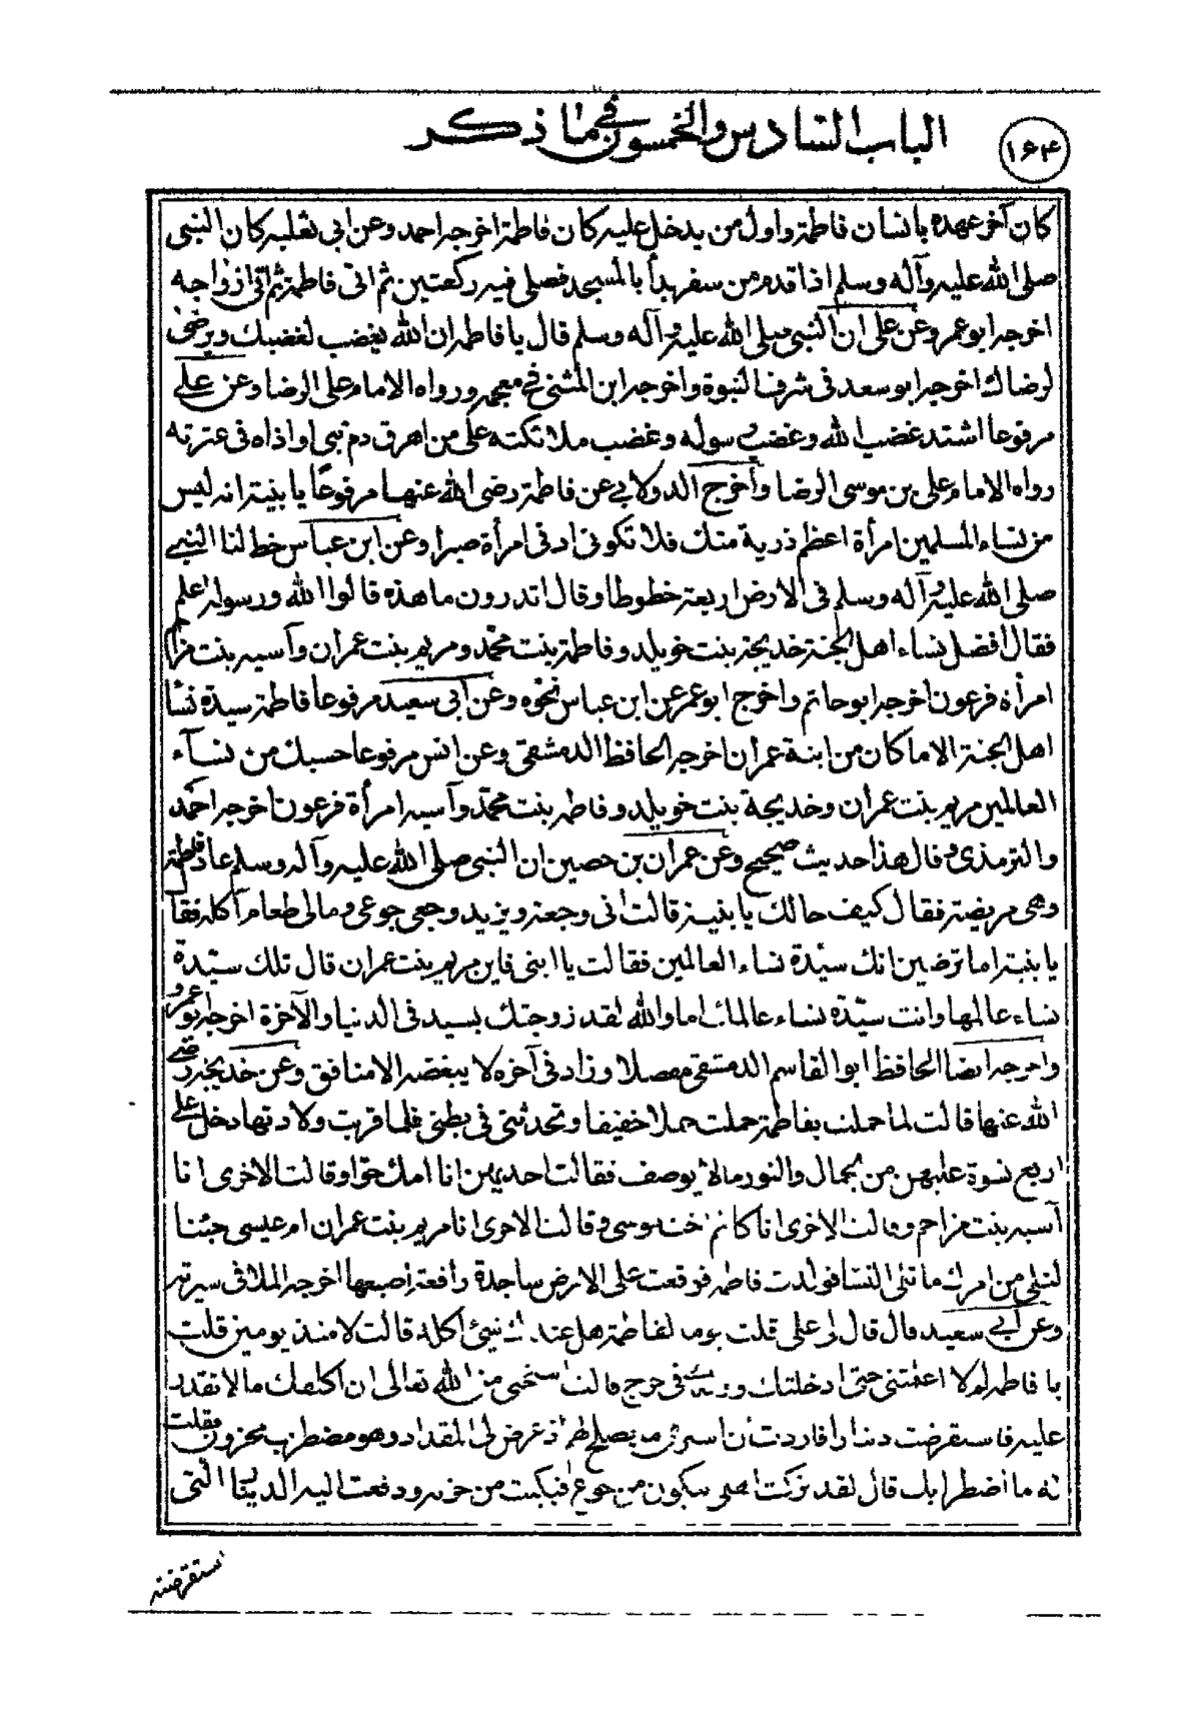 ١٦٤
الباب السادس والخمسون في ما ذكر
كان آخر عهده بانسان فاطمة واول من يدخل عليه كان فاطمة اخرجه احمد وعن ابي ثعلبه كان النبي
صلى الله عليه وآله وسلم اذا قدم من سفر بدأ بالمسجد فصلى فيه ركعتين ثم اتى فاطمة ثم اتى ازواجه
اخرجه ابو عمر وعن على ان النبي صلى الله عليه وآله وسلم قال يا فاطمه ان الله يغضب لغضبك ويرضى
لرضاك اخرجه ابو سعد في شرف النبوة واخرجه ابن المثنى في معجمه ورواه الامام على الرضا وعن على
مرفوعا اشتد غضب الله وغضب رسوله وغضب ملائكته على من اهرق دم نبي او اذاه في عترته
رواه الامام على بن موسى الرضا وأخرج الدولابي عن فاطمة رضى الله عنها مرفوعًا يا بنية انه ليس
من نساء المسلمين امرأة اعظم ذرية منك فلا تكوني ادنى امرأة صبرا وعن ابن عباس خط لنا النبي
صلى الله عليه وآله وسلم في الارض اربعة خطوطا وقال اتدرون ما هذه قالوا الله ورسوله اعلم
فقال افضل نساء اهل الجنة خديجة بنت خويلد وفاطمة بنت محمّد ومريم بنت عمران وآسيه بنت مزاحم
امرأة فرعون اخرجه ابو حاتم واخرج ابو عمر عن ابن عباس نحوه وعن ابي سعيد مرفوعا فاطمة سيدة نساء
اهل الجنة الا ما كان من ابنة عمران اخرجه الحافظ الدمشقي وعن انس مرفوعا حسبك من نسآء
العالمين مريم بنت عمران وخديجة بنت خويلد وفاطمه بنت محمّد وآسيه امرأة فرعون اخرجه احمد
والترمذي وقال هذا حديث صحيح وعن عمران بن حصين ان النبي صلى الله عليه وآله وسلم عاد فاطمة
وهي مريضة فقال كيف حالك يا بنية قالت اني وجعة ويزيد وجعي جوعي ومالى طعام آكله فقال
يا بنية اما ترضين انك سيّدة نساء العالمين فقالت يا ابتي فاين مريم بنت عمران قال تلك سيّدة
نساء عالمها وانت سيّدة نساء عالمك اما والله لقد زوجتك بسيد في الدنيا والآخرة اخرجه ابو عمرو
واخرجه ايضا الحافظ ابو القاسم الدمشقي مفصلا وزاد في آخره لا يبغضه الا منافق وعن خديجة رضى
الله عنها قالت لما حملت بفاطمة حملت حملا خفيفا وتحدثني في بطني فلما قربت ولادتها دخل على
اربع نسوة عليهن من الجمال والنور ما لا يوصف فقالت احديهن انا امك حوا وقالت الاخرى انا
آسيه بنت مزاحم وقالت الاخرى انا كلثم اخت موسى وقالت الاخرى انا مريم بنت عمران ام عيسى جئنا
لنلي من امرك ما تلى النسا فولدت فاطمه فوقعت على الارض ساجدة رافعة اصبعها اخرجه الملا في سيرته
وعن ابي سعيد قال قال لي على قلت يوما لفاطمة هل عندك شيئ اكله قالت لا منذ يومين قلت
يا فاطمه لم لا اعلمتني حتى ادخلتك في حرج قالت استحيى من الله تعالى ان اكلفك ما لا تقدر
عليه فاستقرضت دينارا فاردت ان اشترى ما يصلح لهم اذ عرض لي المقداد وهو مضطرب محزون فقلت
له ما اضطرابك قال لقد تركت اهلى يبكون من جوع فبكيت من حزنه ودفعت اليه الدينار التي
استقرضته